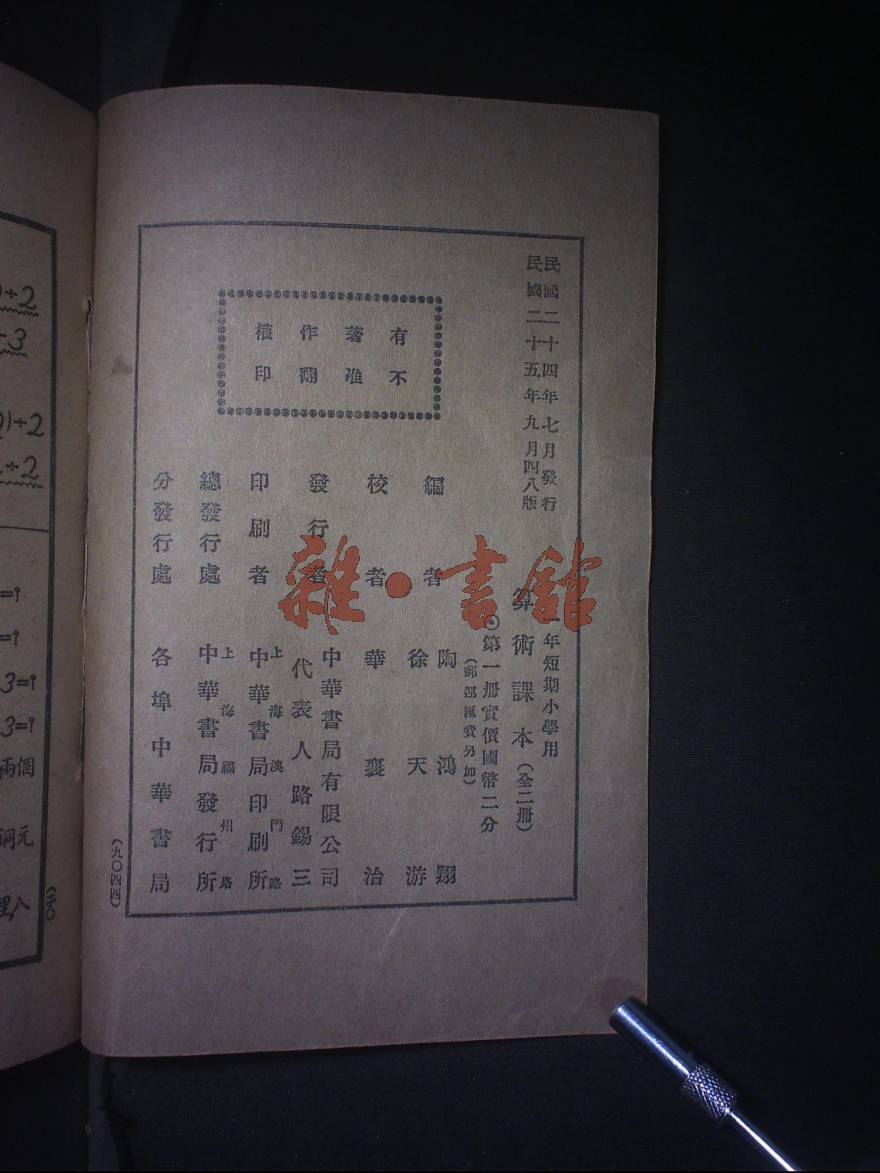 民國二十四年七月發行
民國二十五年九月四八版
一年短期小學用
算術課本（全二册）
◎第一册實價國幣二分
（郵運匯費另加）
有不
著准
作翻
權印
編者 陶鴻翔
徐天游
校者 華襄治
發行者 中華書局有限公司
代表人路錫三
印刷者 上海澳門路
中華書局印刷所
總發行處 上海福州路
中華書局發行所
分發行處 各埠中華書局
（九〇四四）
雜·書館
÷2
3
21÷2
÷2
=?
=?
3=?
3=?
兩個
銅元